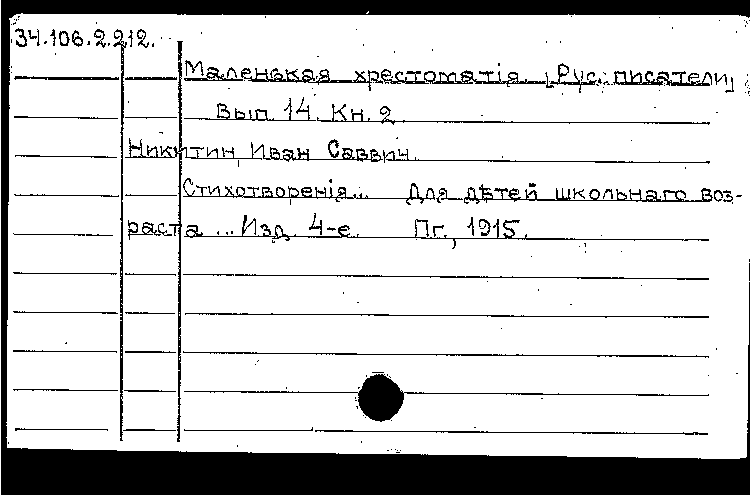 34.106.2.212.
Маленькая хрестоматія. [Рус. писатели]
Вып. 14. Кн. 2
Никитин, Иван Саввич.
Стихотворенія... Для дѣтей школьнаго воз-
раста ... Изд. 4-е. Пг., 1915.